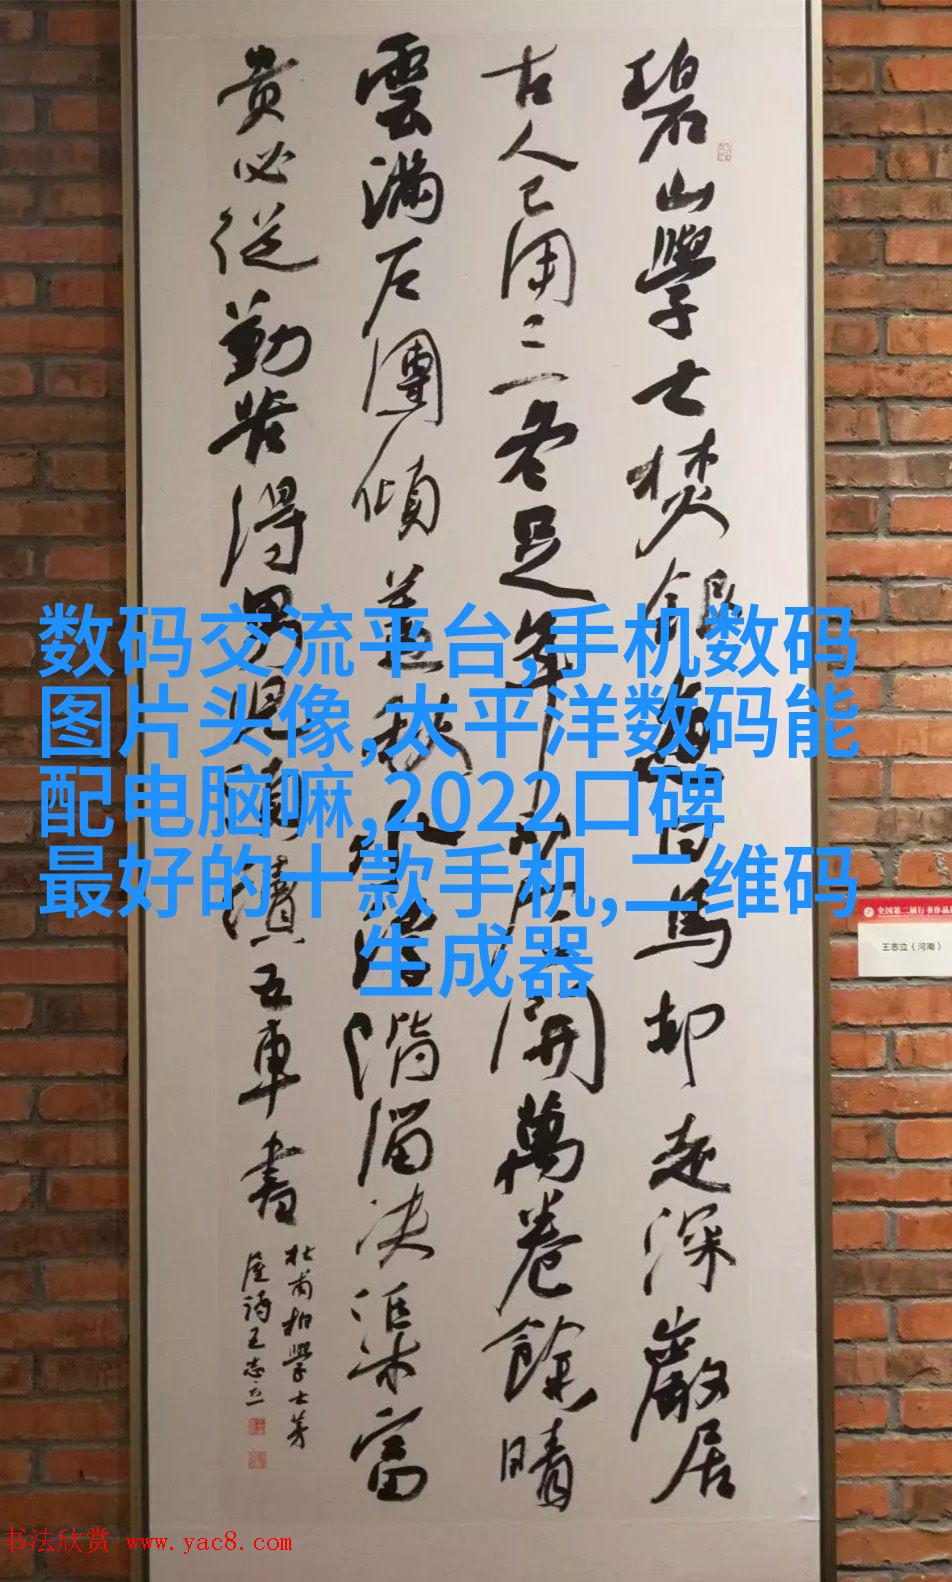 碧山學士焚銀魚白馬却走深巖居
古人已用三冬足年少今開萬卷餘晴
雲滿戶團傾蓋秋水浮階溜决渠富
貴必從勤苦得男兒須讀五車書
杜甫柏學士茅
屋詩王志立
数码交流平台,手机数码
图片头像,太平洋数码能
配电脑嘛,2022口碑
最好的十款手机,二维码
生成器
全国第二届行书作品
王志立（河南）
书法欣赏 www.yac8.com